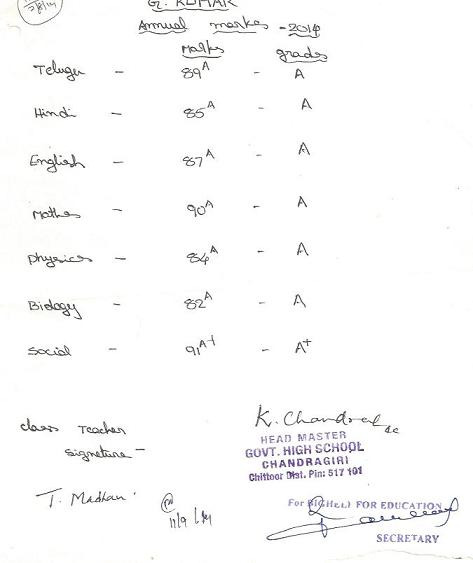 G. KUMAR
Annual marks - 2014
Marks grades
Telugu - 89A - A
Hindi - 85A - A
English - 87A - A
Mathes - 90A - A
physics - 84A - A
Biology - 82A - A
Social - 91A+ - A+
class Teacher
signeture -
K. Chandra
HEAD MASTER
GOVT. HIGH SCHOOL
CHANDRAGIRI
Chittoor Dist. Pin: 517 101
T. Madhan
11/9/14
FOR EDUCATION
SECRETARY